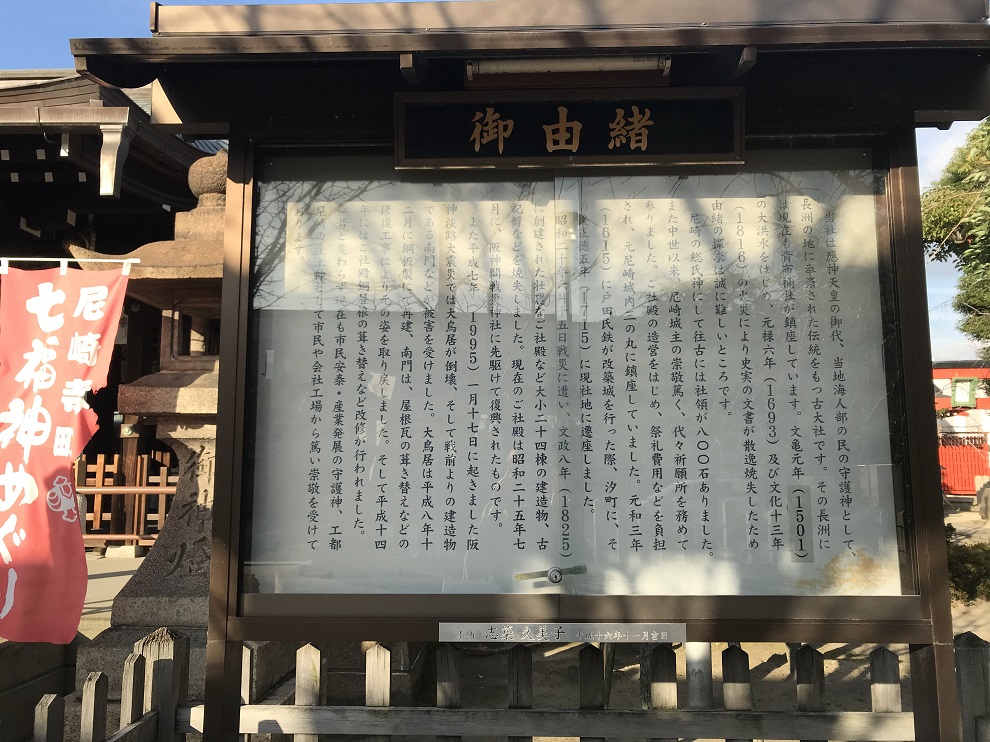 御由緒
当社は應神天皇の御代、当地海人部の民の守護神として、
長洲の地に奉斎された伝統をもつ古大社です。その長洲に
は現在も貴布禰社が鎮座しています。文亀元年(1501)
の大洪水をはじめ、元禄六年(1693)及び文化十三年
(1816)の火災により史実の文書が散逸焼失したため
由緒の探求は誠に難しいところです。
尼崎の総氏神にして往古には社領が八〇〇石ありました。
また中世以来、尼崎城主の崇敬篤く、代々祈願所を務めて
参りました。ご社殿の造営をはじめ、祭礼費用などを負担
され、元尼崎城内三の丸に鎮座していました。元和三年
(1615)に戸田氏鉄が改築城を行った際、汐町に、そ
の後正徳五年(1715)に現社地に遷座しました。
昭和二十年 五日戦災に遭い、文政八年(1825)
に創建された社殿などご社殿など大小二十四棟の建造物、古
などを焼失しました。現在のご社殿は昭和二十五年七
月に、阪神間戦災神社に先駆けて復興されたものです。
また平成七年(1995)一月十七日に起きました阪
神淡路大震災では大鳥居が倒壊、そして戦前よりの建造物
である南門などが被害を受けました。大鳥居は平成八年十
二月に銅板製にて再建、南門は、屋根瓦の葺き替えなどの
修復工事により元の姿を取り戻しました。そして平成十四
年にはご社殿銅屋根の葺き替えなど改修が行われました。
昔と変わらず現在も市民安泰・産業発展の守護神、工都
して市民や会社工場から篤い崇敬を受けて
おります。
奉納 志築久美子 平成十六年十一月吉日
尼崎寺町
七福神めぐり
御神燈